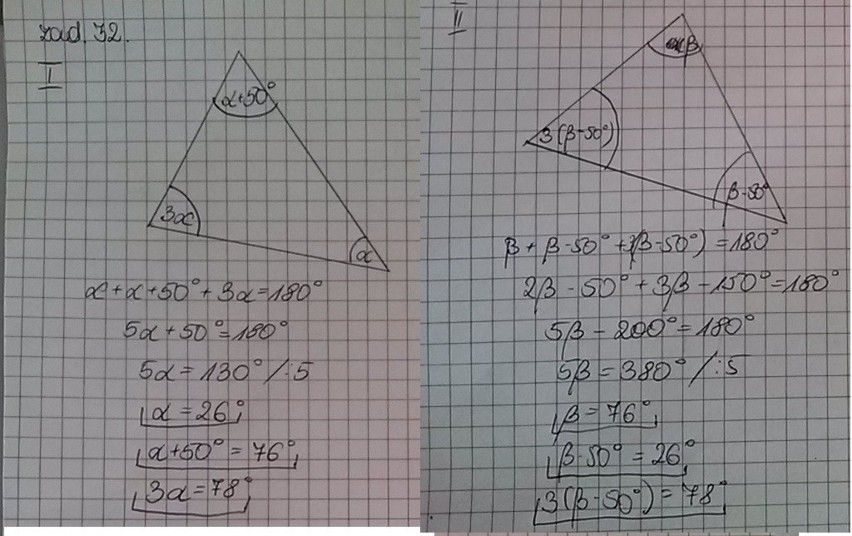 zad. 32.
I
α+50°
3α
α
α+α+50°+3α=180°
5α+50°=180°
5α=130° /:5
α=26°
α+50°=76°
3α=78°
II
β
3(β-50°)
β-50°
β+β-50°+3(β-50°)=180°
2β-50°+3β-150°=180°
5β-200°=180°
5β=380° /:5
β=76°
β-50°=26°
3(β-50°)=78°